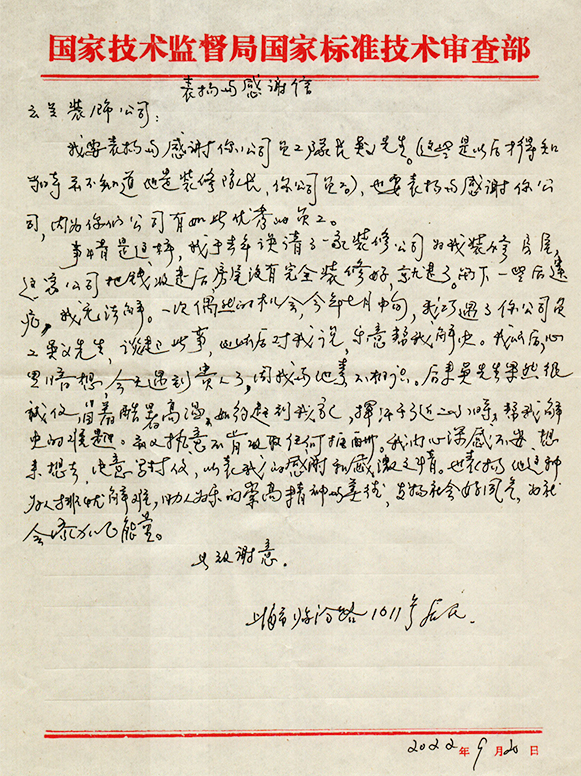 国家技术监督局国家标准技术审查部
表扬与感谢信
玄呈装饰公司:
我要表扬与感谢你公司员工隊长 先生。(这些是以后才得知
当时我不知道他是装修隊长,你公司员工),也要表扬与感谢你公
司,因为你们公司有如此优秀的员工。
事情是这样,我于去年请了一家装修公司为我装修房屋,
这家公司把钱收走后房屋没有完全装修好,就走了。留下一些后遗
症,我无法解。一次偶然的机会,今年七月中旬,我巧遇了你公司员
工 先生,谈起此事,他听后对我说,乐意帮我解决。我听后,心
里暗想,今天遇到贵人了,因我与他素不相识。后来 先生果然很
诚信,冒着酷暑高温,如约赶到我家,挥汗 了近二小时,帮我解
决的难题。 又执意不肯收取任何报酬。我内心深感不安,想
来想去,决意写封信,以表我的感谢和感激之情。也表扬他这种
为人排忧解难,助人为乐的崇高精神与美德,支持社会好风气,为社
会添加正能量。
此致谢意。
上海市临汾路1011弄居民
2022年9月20日